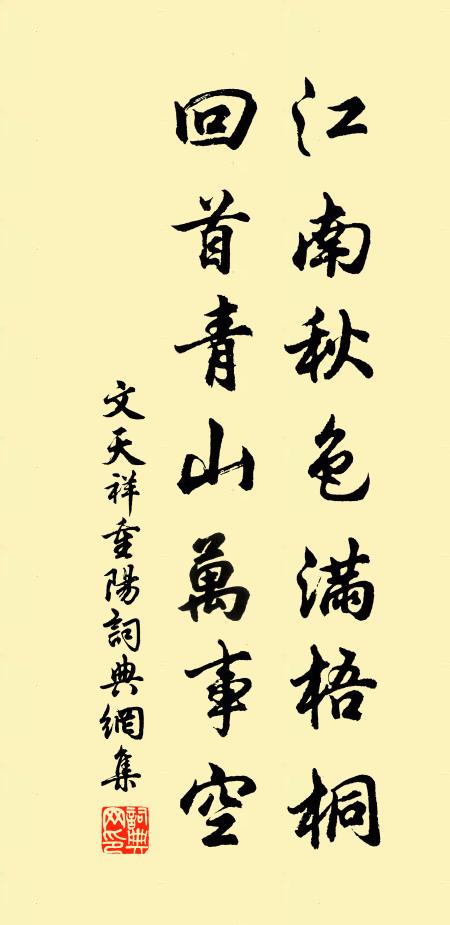 江南秋色滿梧桐
回首青山萬事空
文天祥重陽詞典網集
詞典網印